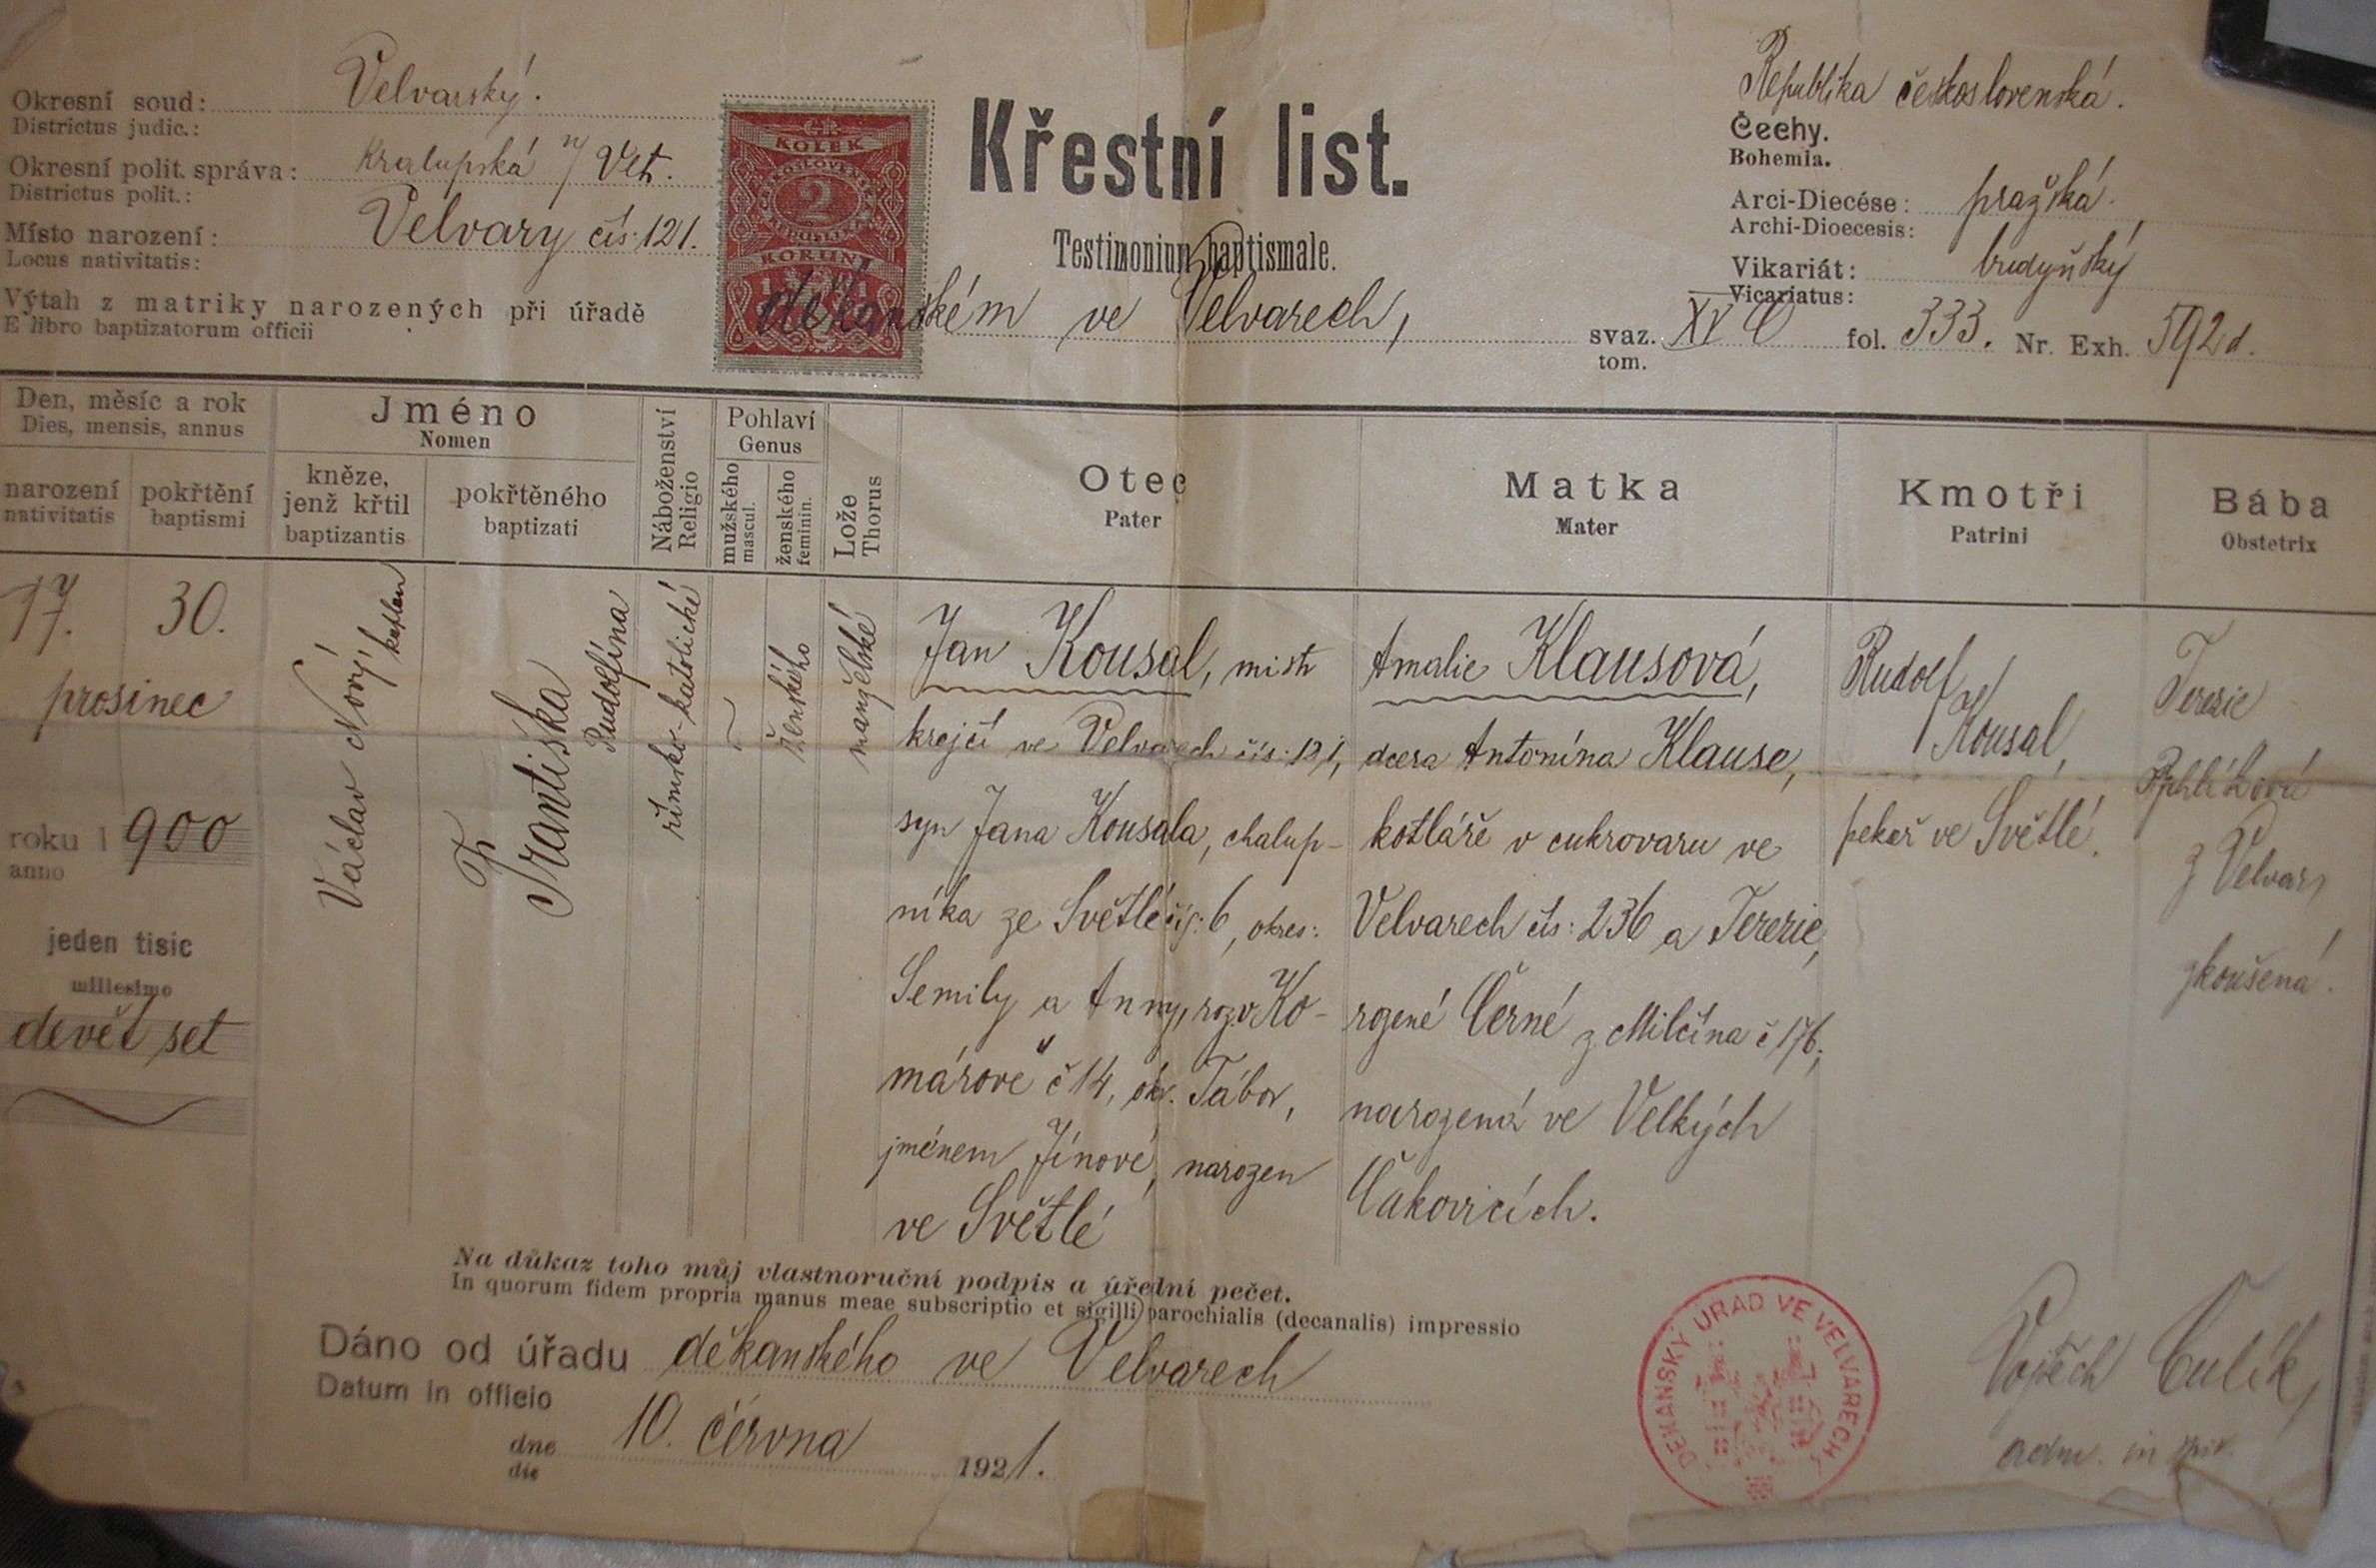 Okresní soud: Velvarský.
Districtus judic.:
Okresní polit. správa: Kralupská n/Vlt.
Districtus polit.:
Místo narození: Velvary čís: 121.
Locus nativitatis:
Výtah z matriky narozených při úřadě děkanském ve Velvarech,
E libro baptizatorum officii
KOLEK
2
KORUNY
Křestní list.
Testimonium baptismale.
Republika československá.
Čechy.
Bohemia.
Arci-Diecése: pražská.
Archi-Dioecesis:
Vikariát: budyňský
Vicariatus:
svaz. XV fol. 333. Nr. Exh. 592 d.
tom.
Den, měsíc a rok
Dies, mensis, annus
narození
nativitatis
pokřtění
baptismi
Jméno
Nomen
kněze,
jenž křtil
baptizantis
pokřtěného
baptizati
Náboženství
Religio
Pohlaví
Genus
mužského
mascul.
ženského
feminin.
Lože
Thorus
Otec
Pater
Matka
Mater
Kmotři
Patrini
Bába
Obstetrix
17. 30.
prosinec
roku 1900
anno
jeden tisíc
millesimo
devět set
Václav Nový kaplan
Františka
Rudolfína
římsko-katolické
ženského
manželské
Jan Kousal, mistr
krejčí ve Velvarech čís: 121,
syn Jana Kousala, chalup-
níka ze Světlé čís: 6, okres:
Semily a Anny, roz. v Ko-
márově č 14, okr. Tábor,
jménem Jínové, narozen
ve Světlé
Amalie Klausová,
dcera Antonína Klause,
kotláře v cukrovaru ve
Velvarech čís: 236 a Terezie,
rozené Černé z Milčína č 176;
narozená ve Velkých
Čakovicích.
Rudolf
Kousal,
pekař ve Světlé.
Terezie
z Velvar,
zkoušená.
Na důkaz toho můj vlastnoruční podpis a úřední pečet.
In quorum fidem propria manus meae subscriptio et sigilli parochialis (decanalis) impressio
Dáno od úřadu děkanského ve Velvarech
Datum in officio
dne 10. června 1921.
die
DĚKANSKÝ ÚŘAD VE VELVARECH
Vojtěch Culík,
adm. in spir.